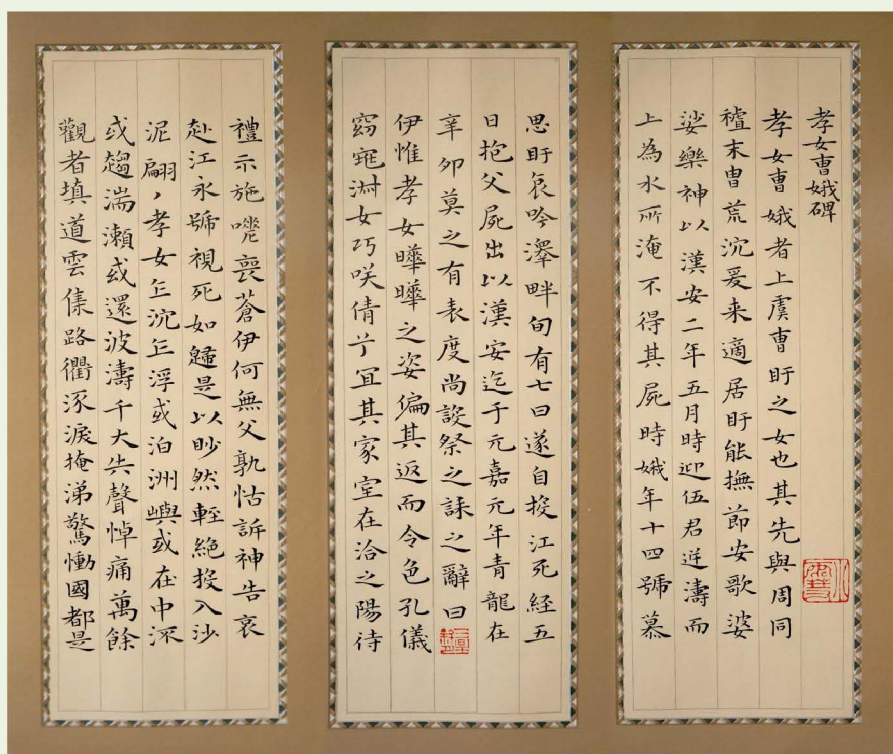 孝女曹娥碑
孝女曹娥者上虞曹盱之女也其先與周同
禮末曹荒沉爰来適居盱能撫節安歌婆
娑樂神以漢安二年五月時迎伍君逆濤而
上為水所淹不得其屍時娥年十四號慕
思盱哀吟澤畔旬有七日遂自投江死経五
日抱父屍出以漢安迄于元嘉元年青龍在
辛卯莫之有表度尚設祭之誄之辭曰
伊惟孝女曄曄之姿偏其返而令色孔儀
窈窕淑女巧咲倩兮宜其家室在洽之陽待
禮示施嗟喪蒼伊何無父孰怙訴神告哀
赴江永號視死如歸是以眇然輕絕投入沙
泥翩〻孝女乍沉乍浮或泊洲嶼或在中流
或趨湍瀨或還波濤千夫失聲悼痛萬餘
觀者填道雲集路衢泳淚掩涕驚慟國都是